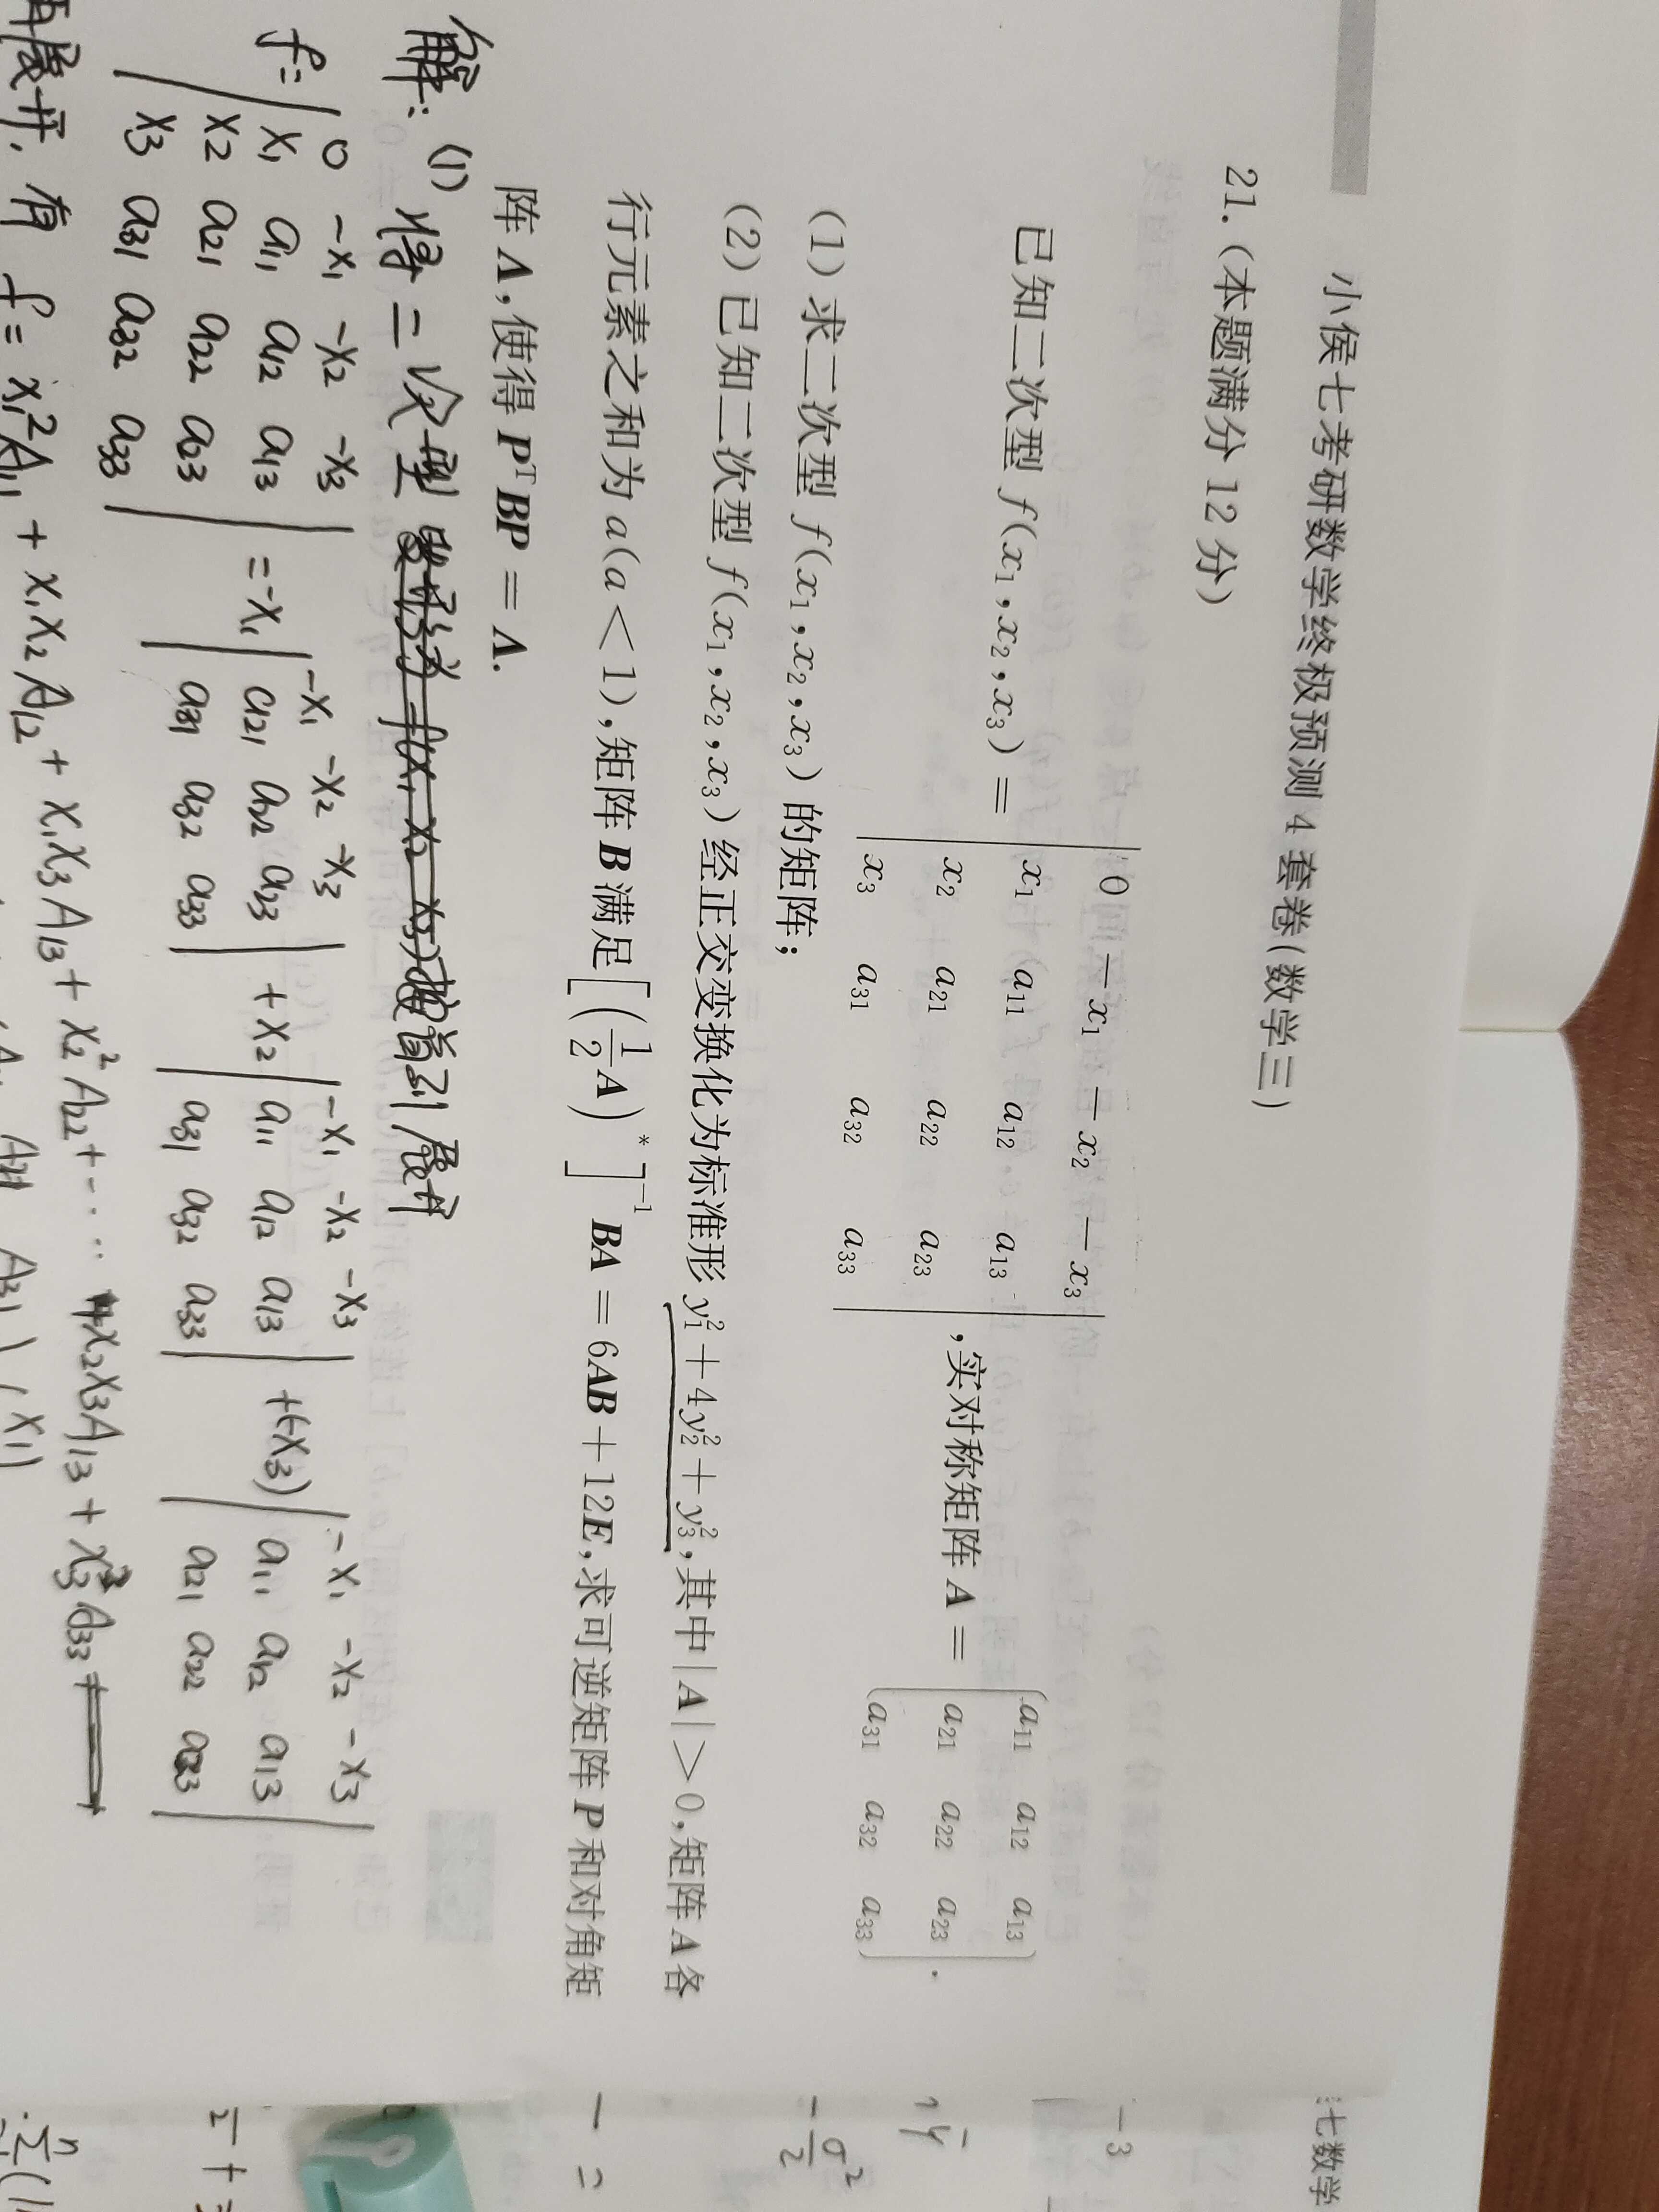 小侯七考研数学终极预测 4 套卷(数学三)
21.(本题满分 12 分)
已知二次型 f(x₁,x₂,x₃) = | 0 −x₁ −x₂ −x₃ |
| x₁ a₁₁ a₁₂ a₁₃ |
| x₂ a₂₁ a₂₂ a₂₃ |
| x₃ a₃₁ a₃₂ a₃₃ | ,实对称矩阵 A =
( a₁₁ a₁₂ a₁₃ )
( a₂₁ a₂₂ a₂₃ )
( a₃₁ a₃₂ a₃₃ ) .
(1) 求二次型 f(x₁,x₂,x₃) 的矩阵;
(2) 已知二次型 f(x₁,x₂,x₃) 经正交变换化为标准形 y₁² + 4y₂² + y₃²,其中 |A| > 0,矩阵 A 各
行元素之和为 a(a < 1),矩阵 B 满足 [(1/2 A)*]⁻¹ BA = 6AB + 12E,求可逆矩阵 P 和对角矩
阵 Λ,使得 PᵀBP = Λ.
解: (1) 将二次型 按首列展开
f = | 0 −x₁ −x₂ −x₃ |
| x₁ a₁₁ a₁₂ a₁₃ |
| x₂ a₂₁ a₂₂ a₂₃ |
| x₃ a₃₁ a₃₂ a₃₃ |
= −x₁ | −x₁ −x₂ −x₃ |
| a₂₁ a₂₂ a₂₃ |
| a₃₁ a₃₂ a₃₃ |
+ x₂ | −x₁ −x₂ −x₃ |
| a₁₁ a₁₂ a₁₃ |
| a₃₁ a₃₂ a₃₃ |
+(−x₃) | −x₁ −x₂ −x₃ |
| a₁₁ a₁₂ a₁₃ |
| a₂₁ a₂₂ a₂₃ |
再展开, 有 f = x₁²A₁₁ + x₁x₂A₁₂ + x₁x₃A₁₃ + x₂²A₂₂ + ⋯ x₂x₃A₁₃ + x₃²A₃₃
七数学
−3